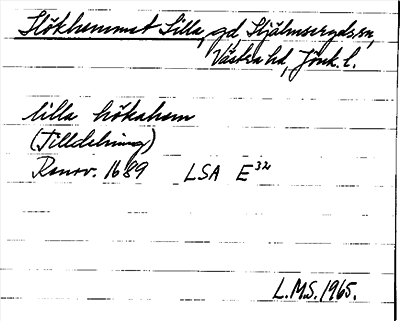 Hökhemmet Lilla, gd Hjälmseryds sn,
Västra hd, Jönk. l.
lilla hökahem
(Tilldelning)
Renov. 1689 LSA E³²
L.M.S. 1965.